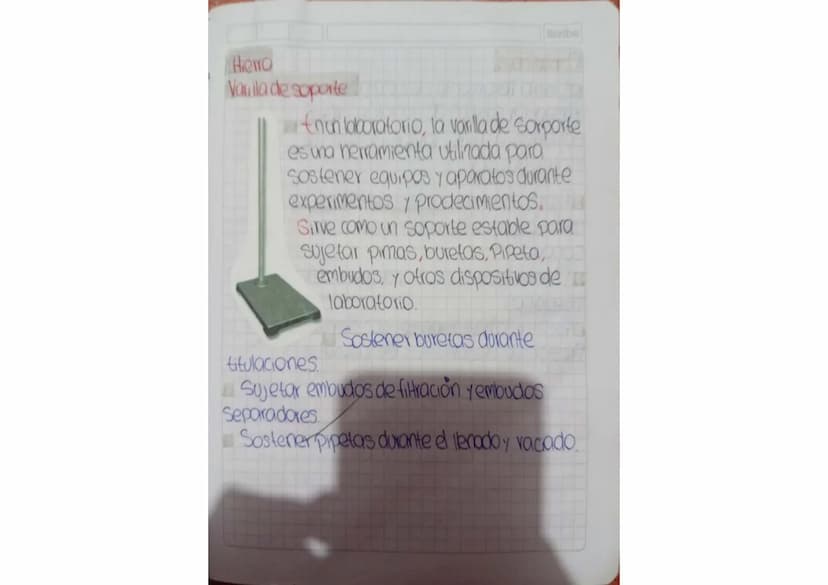 Scribe
Hierro
Varilla de soporte
En un laboratorio, la varilla de sorporte
es una herramienta utilizada para
sostener equipos y aparatos durante
experimentos y prodecimientos.
Sirve como un soporte estable para
sujetar pinzas, buretas, Pipeta,
embudos, y otros dispositivos de
laboratorio.
Sostener buretas durante
titulaciones.
Sujetar embudos de filtración y embudos
separadores.
Sostener pipetas durante el llenado y vaciado.